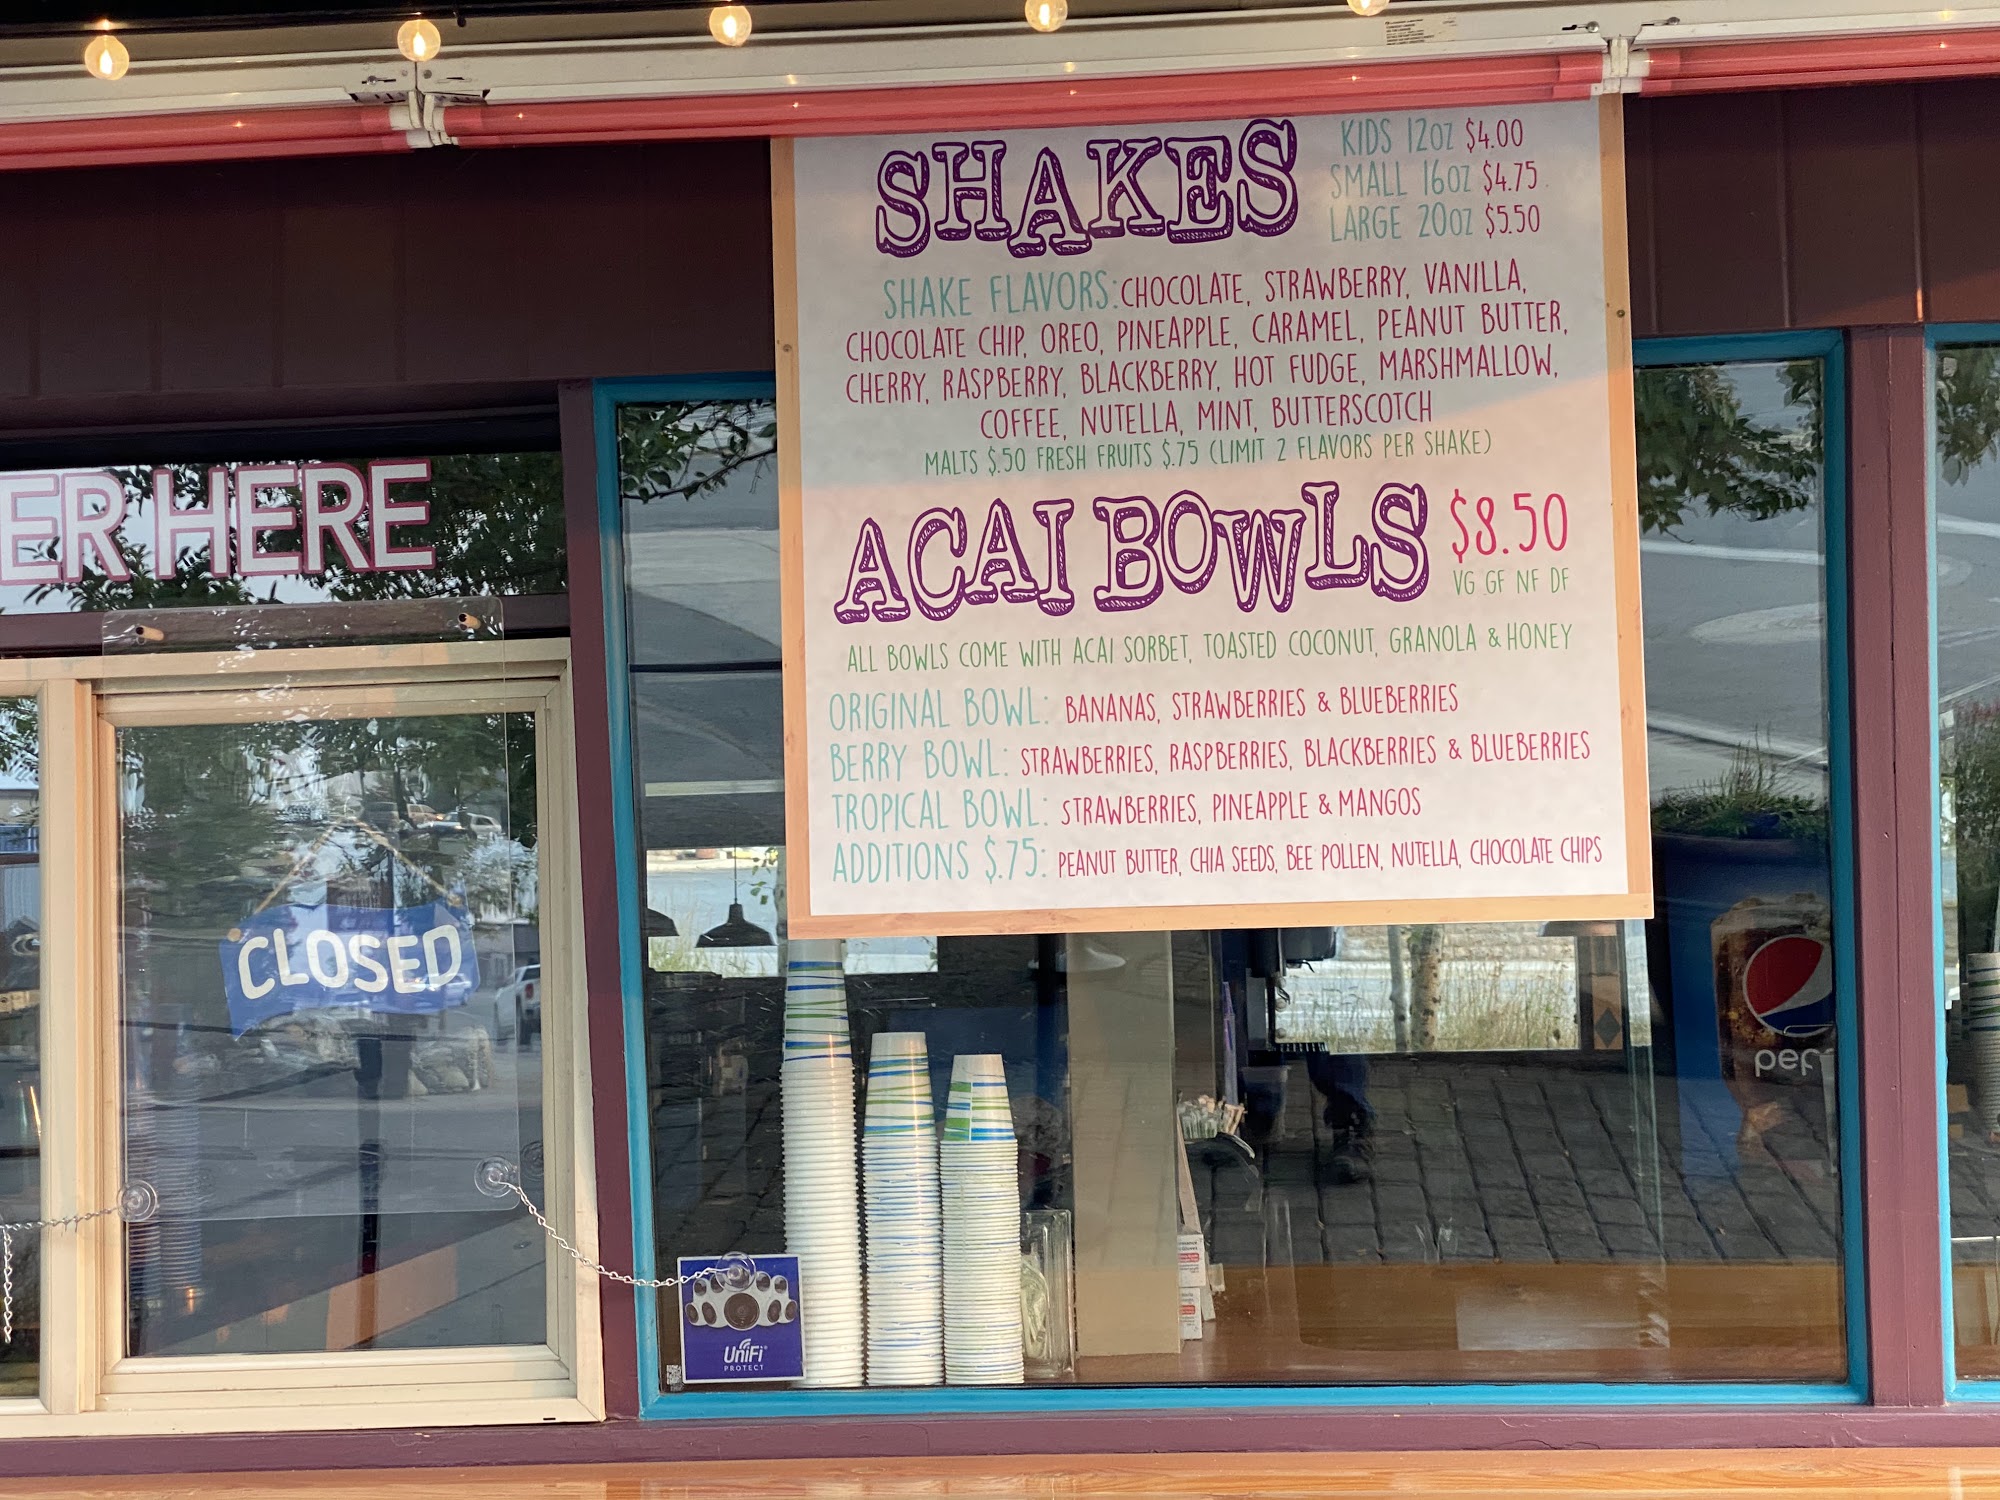 SHAKES
KIDS 12OZ $4.00
SMALL 16OZ $4.75
LARGE 20OZ $5.50
SHAKE FLAVORS: CHOCOLATE, STRAWBERRY, VANILLA,
CHOCOLATE CHIP, OREO, PINEAPPLE, CARAMEL, PEANUT BUTTER,
CHERRY, RASPBERRY, BLACKBERRY, HOT FUDGE, MARSHMALLOW,
COFFEE, NUTELLA, MINT, BUTTERSCOTCH
MALTS $.50 FRESH FRUITS $.75 (LIMIT 2 FLAVORS PER SHAKE)
ACAI BOWLS $8.50
VG GF NF DF
ALL BOWLS COME WITH ACAI SORBET, TOASTED COCONUT, GRANOLA & HONEY
ORIGINAL BOWL: BANANAS, STRAWBERRIES & BLUEBERRIES
BERRY BOWL: STRAWBERRIES, RASPBERRIES, BLACKBERRIES & BLUEBERRIES
TROPICAL BOWL: STRAWBERRIES, PINEAPPLE & MANGOS
ADDITIONS $.75: PEANUT BUTTER, CHIA SEEDS, BEE POLLEN, NUTELLA, CHOCOLATE CHIPS
ER HERE
CLOSED
pep
UniFi
PROTECT